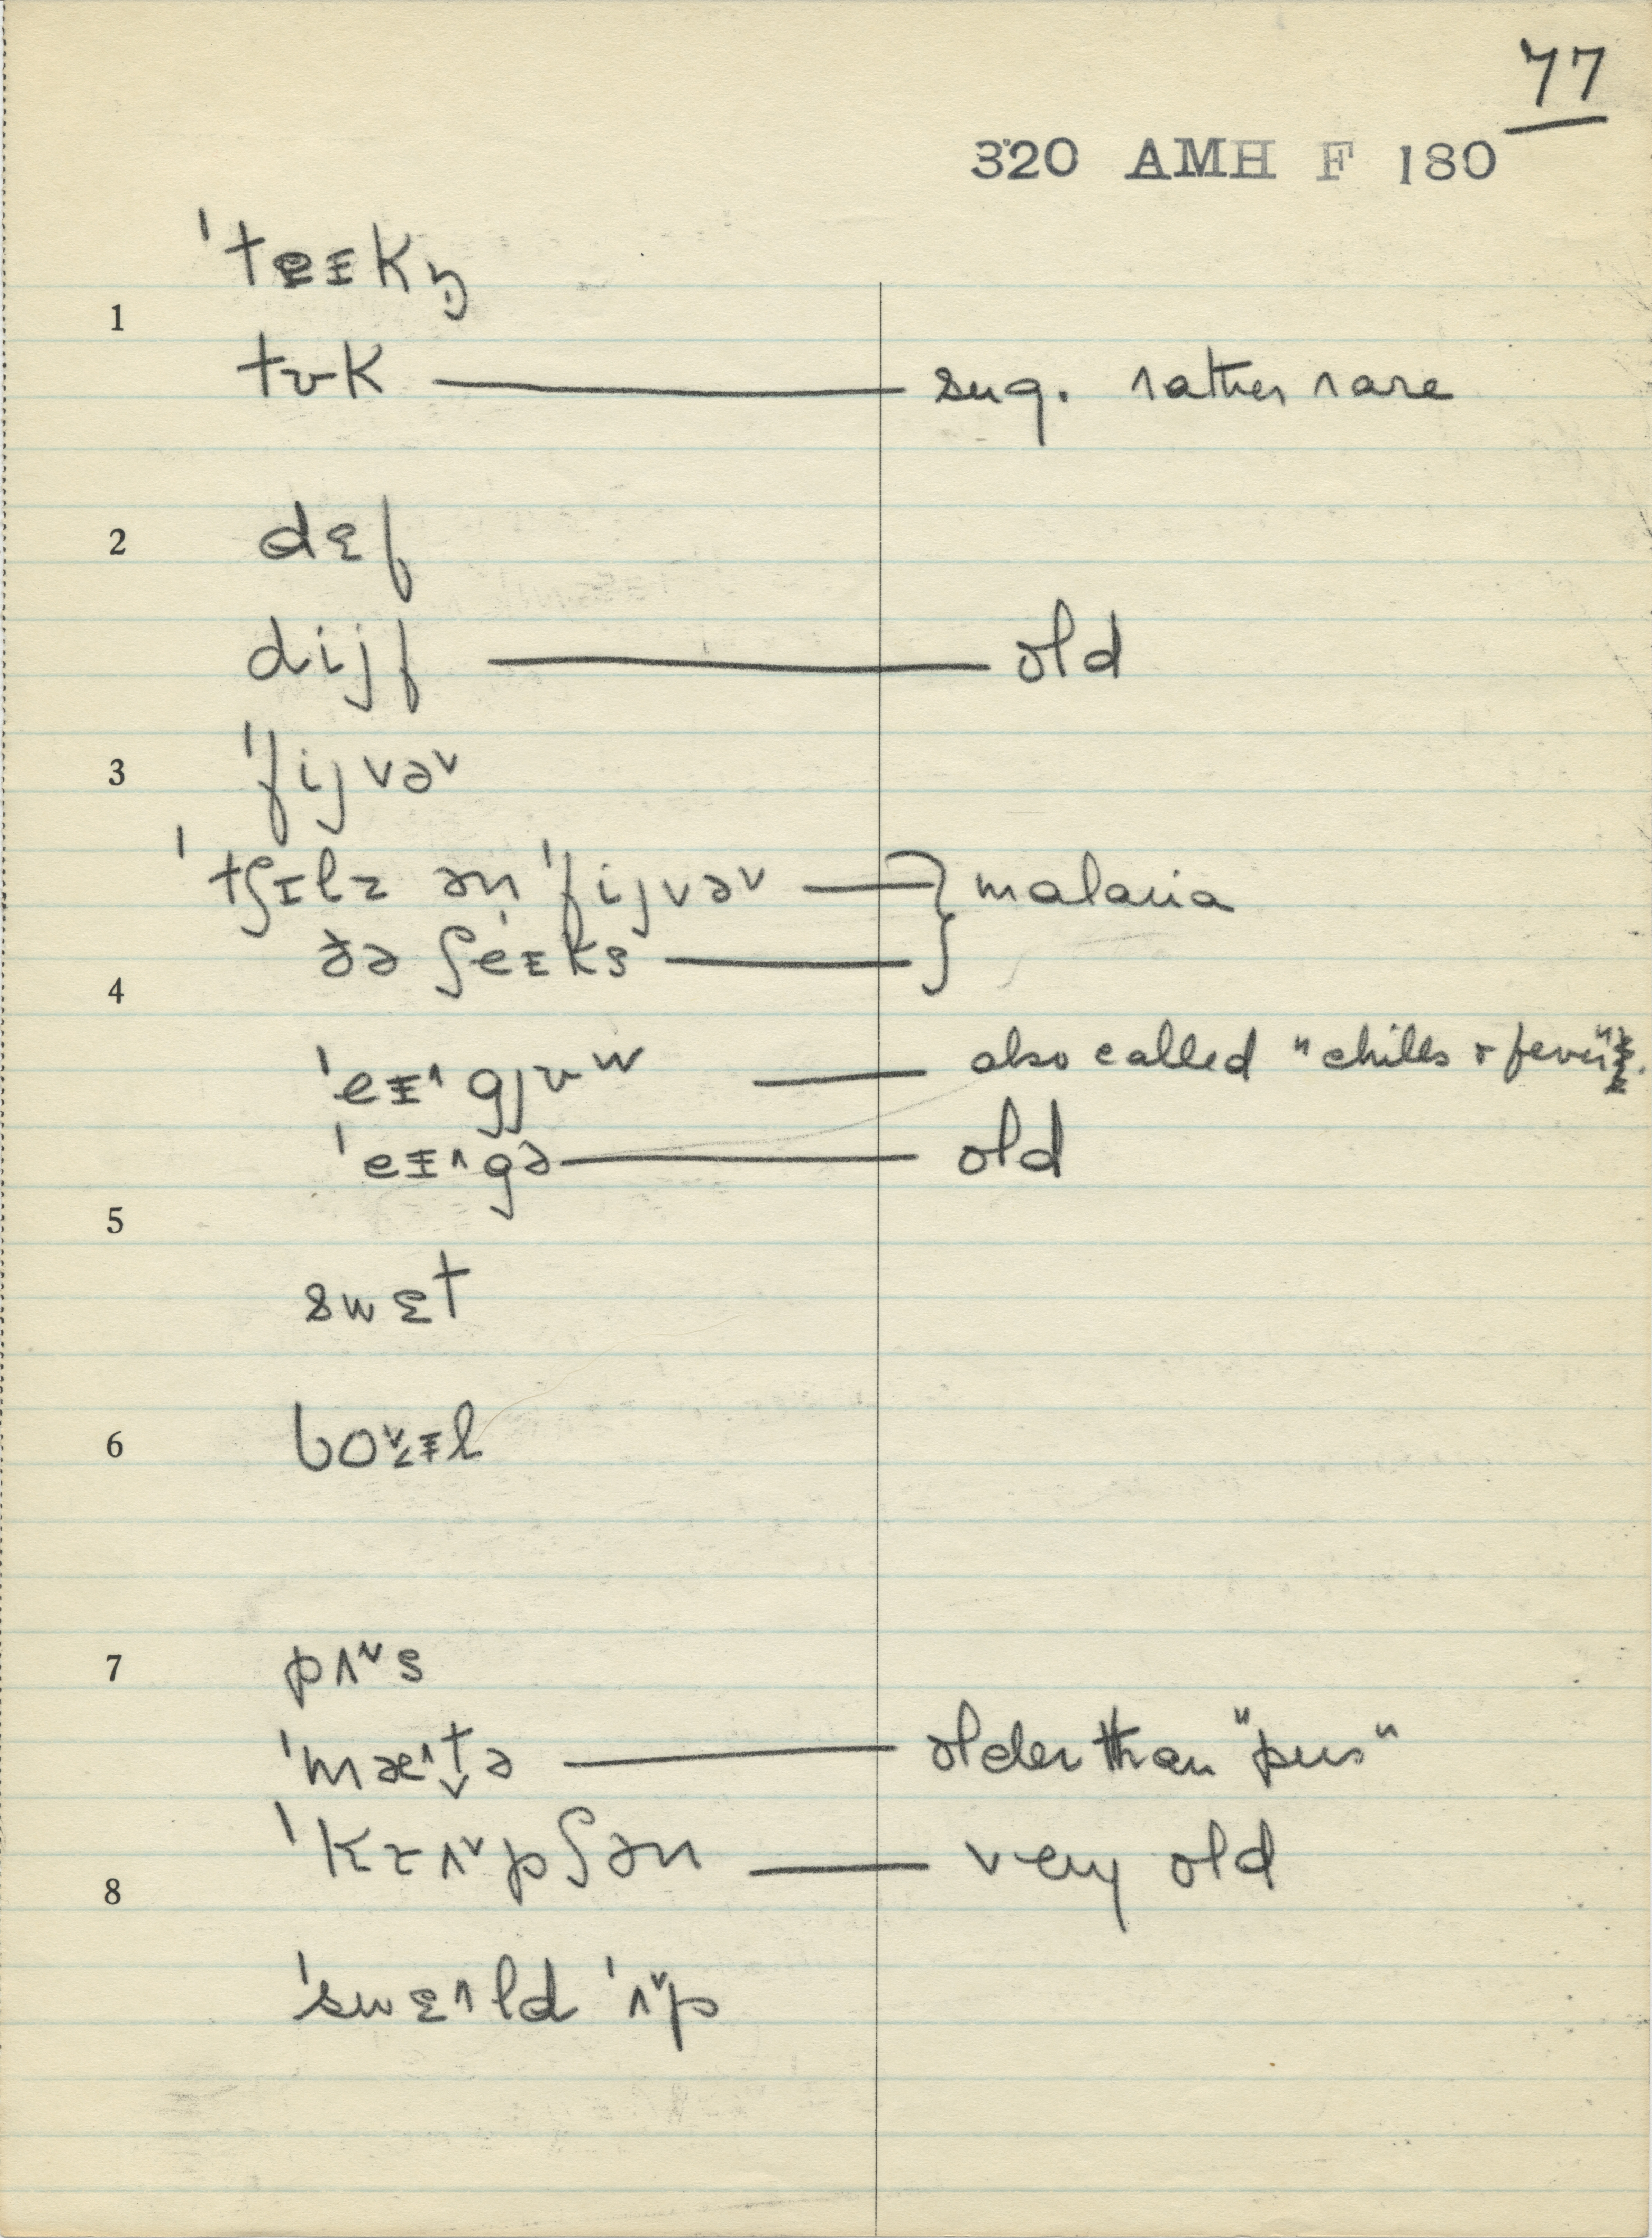 77
320 AMH F 180
ˈteɪkŋ̩
1
tʊk — sug. rather rare
2
dɛf
dijf — old
3
ˈfijvə˅
ˈtʃɪlz ən ˈfijvə˅ — } malaria
ðə ʃeɪks — }
4
ˈeɪ˄gjʊʷ — also called "chills + fever".
ˈeɪ˄gə — old
5
swɛt
6
bɔ˅ɪl
7
pʌ˅s
ˈmæ˄t̬ə — older than "pus"
ˈkɪʌ˅pʃən — very old
8
ˈswɛ˄ld ˈʌ˅p